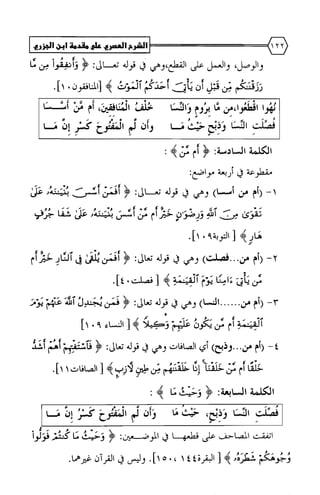 ١٢٢ الشرح العصري على مقدمة ابن الجزري
والوصل، والعمل على القطع، وهي في قوله تعالى: ﴿ وَأَنفِقُوا۟ مِن مَّا
رَزَقْنَٰكُم مِّن قَبْلِ أَن يَأْتِىَ أَحَدَكُمُ ٱلْمَوْتُ ﴾ [المنافقون١٠].
نُهُوا اقْطَعُوا، مِن مَّا بِرُومٍ وَالنِّسَا خُلْفُ الْمُنَافِقِينَ، أَم مَّنْ أَسَّسَا
فُصِّلَتِ النِّسَا وَذِبْحٍ حَيْثُ مَا وأن لَّمِ الْمَفْتُوحَ كَسْرُ إِنَّ مَا
الكلمة السادسة: ﴿ أَم مَّنْ ﴾ :
مقطوعة في أربعة مواضع:
١- (أم من أسسا) وهي في قوله تعالى: ﴿ أَفَمَنْ أَسَّسَ بُنْيَٰنَهُۥ عَلَىٰ
تَقْوَىٰ مِنَ ٱللَّهِ وَرِضْوَٰنٍ خَيْرٌ أَم مَّنْ أَسَّسَ بُنْيَٰنَهُۥ عَلَىٰ شَفَا جُرُفٍ
هَارٍ ﴾ [ التوبة١٠٩].
٢- (أم من...فصلت) وهي في قوله تعالى: ﴿ أَفَمَن يُلْقَىٰ فِى ٱلنَّارِ خَيْرٌ أَم
مَّن يَأْتِىٓ ءَامِنًا يَوْمَ ٱلْقِيَٰمَةِ ﴾ [ فصلت٤٠].
٣- (أم من......النسا) وهي في قوله تعالى: ﴿ فَمَن يُجَٰدِلُ ٱللَّهَ عَنْهُمْ يَوْمَ
ٱلْقِيَٰمَةِ أَم مَّن يَكُونُ عَلَيْهِمْ وَكِيلًا ﴾ [ النساء ١٠٩]
٤- (أم من...وذبح) أي الصافات وهي في قوله تعالى: ﴿ فَٱسْتَفْتِهِمْ أَهُمْ أَشَدُّ
خَلْقًا أَم مَّنْ خَلَقْنَآ إِنَّا خَلَقْنَٰهُم مِّن طِينٍ لَّازِبٍ ﴾ [ الصافات١١].
الكلمة السابعة: ﴿ وَحَيْثُ مَا ﴾ :
فُصِّلَتِ النِّسَا وَذِبْحٍ، حَيْثُ مَا وأن لَّمِ الْمَفْتُوحَ كَسْرُ إِنَّ مَا
اتفقت المصاحف على قطعهـا في الموضـعين: ﴿ وَحَيْثُ مَا كُنتُمْ فَوَلُّوا۟
وُجُوهَكُمْ شَطْرَهُۥ ﴾ [ البقرة١٤٤، ١٥٠]. وليس في القرآن غيرهما.